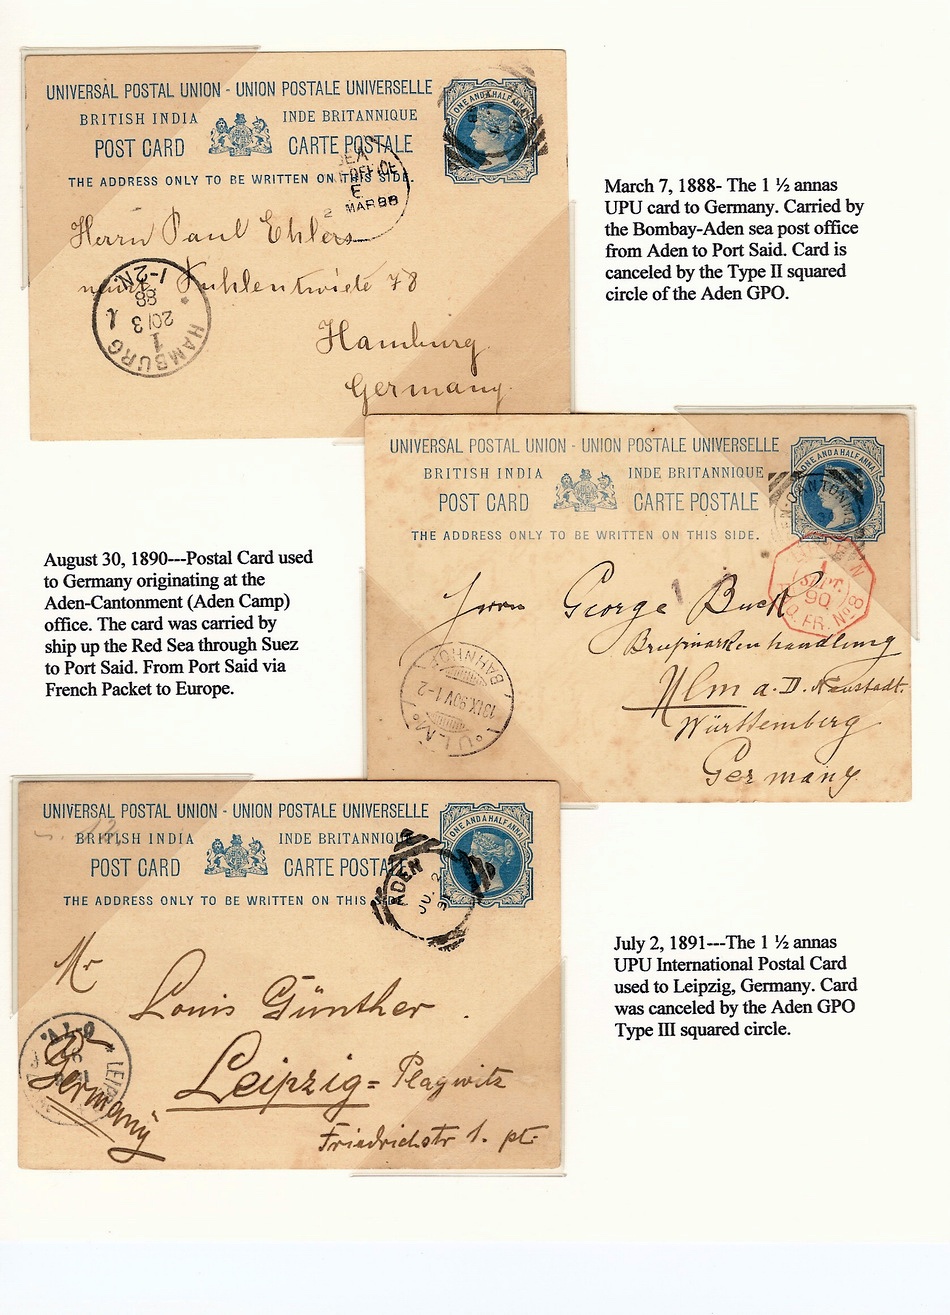 UNIVERSAL POSTAL UNION - UNION POSTALE UNIVERSELLE
BRITISH INDIA INDE BRITANNIQUE
POST CARD CARTE POSTALE
THE ADDRESS ONLY TO BE WRITTEN ON THIS SIDE.
ONE AND A HALF ANNA
SEA
OFFICE
E
MAR 88
Herrn Paul Ehlers
78
Hamburg
Germany.
HAMBURG
1
20/3
88
1-2 N.
March 7, 1888- The 1 ½ annas
UPU card to Germany. Carried by
the Bombay-Aden sea post office
from Aden to Port Said. Card is
canceled by the Type II squared
circle of the Aden GPO.
UNIVERSAL POSTAL UNION - UNION POSTALE UNIVERSELLE
BRITISH INDIA INDE BRITANNIQUE
POST CARD CARTE POSTALE
THE ADDRESS ONLY TO BE WRITTEN ON THIS SIDE.
ONE AND A HALF ANNA
EN-CANTONME
1
SEPT.
90
Q. FR. No 8
Herrn George Buck
Briefmarkenhandlung
Ulm a. D. Neustadt.
Württemberg
Germany.
BAHNHOF
13 IX 90 V 1-2
ULM
August 30, 1890---Postal Card used
to Germany originating at the
Aden-Cantonment (Aden Camp)
office. The card was carried by
ship up the Red Sea through Suez
to Port Said. From Port Said via
French Packet to Europe.
UNIVERSAL POSTAL UNION - UNION POSTALE UNIVERSELLE
BRITISH INDIA INDE BRITANNIQUE
POST CARD CARTE POSTALE
THE ADDRESS ONLY TO BE WRITTEN ON THIS SIDE.
ONE AND A HALF ANNA
ADEN
JU. 2
91
Mr
Louis Günther
Leipzig = Plagwitz
Friedrichstr 1. pt.
Germany
LEIPZ
July 2, 1891---The 1 ½ annas
UPU International Postal Card
used to Leipzig, Germany. Card
was canceled by the Aden GPO
Type III squared circle.